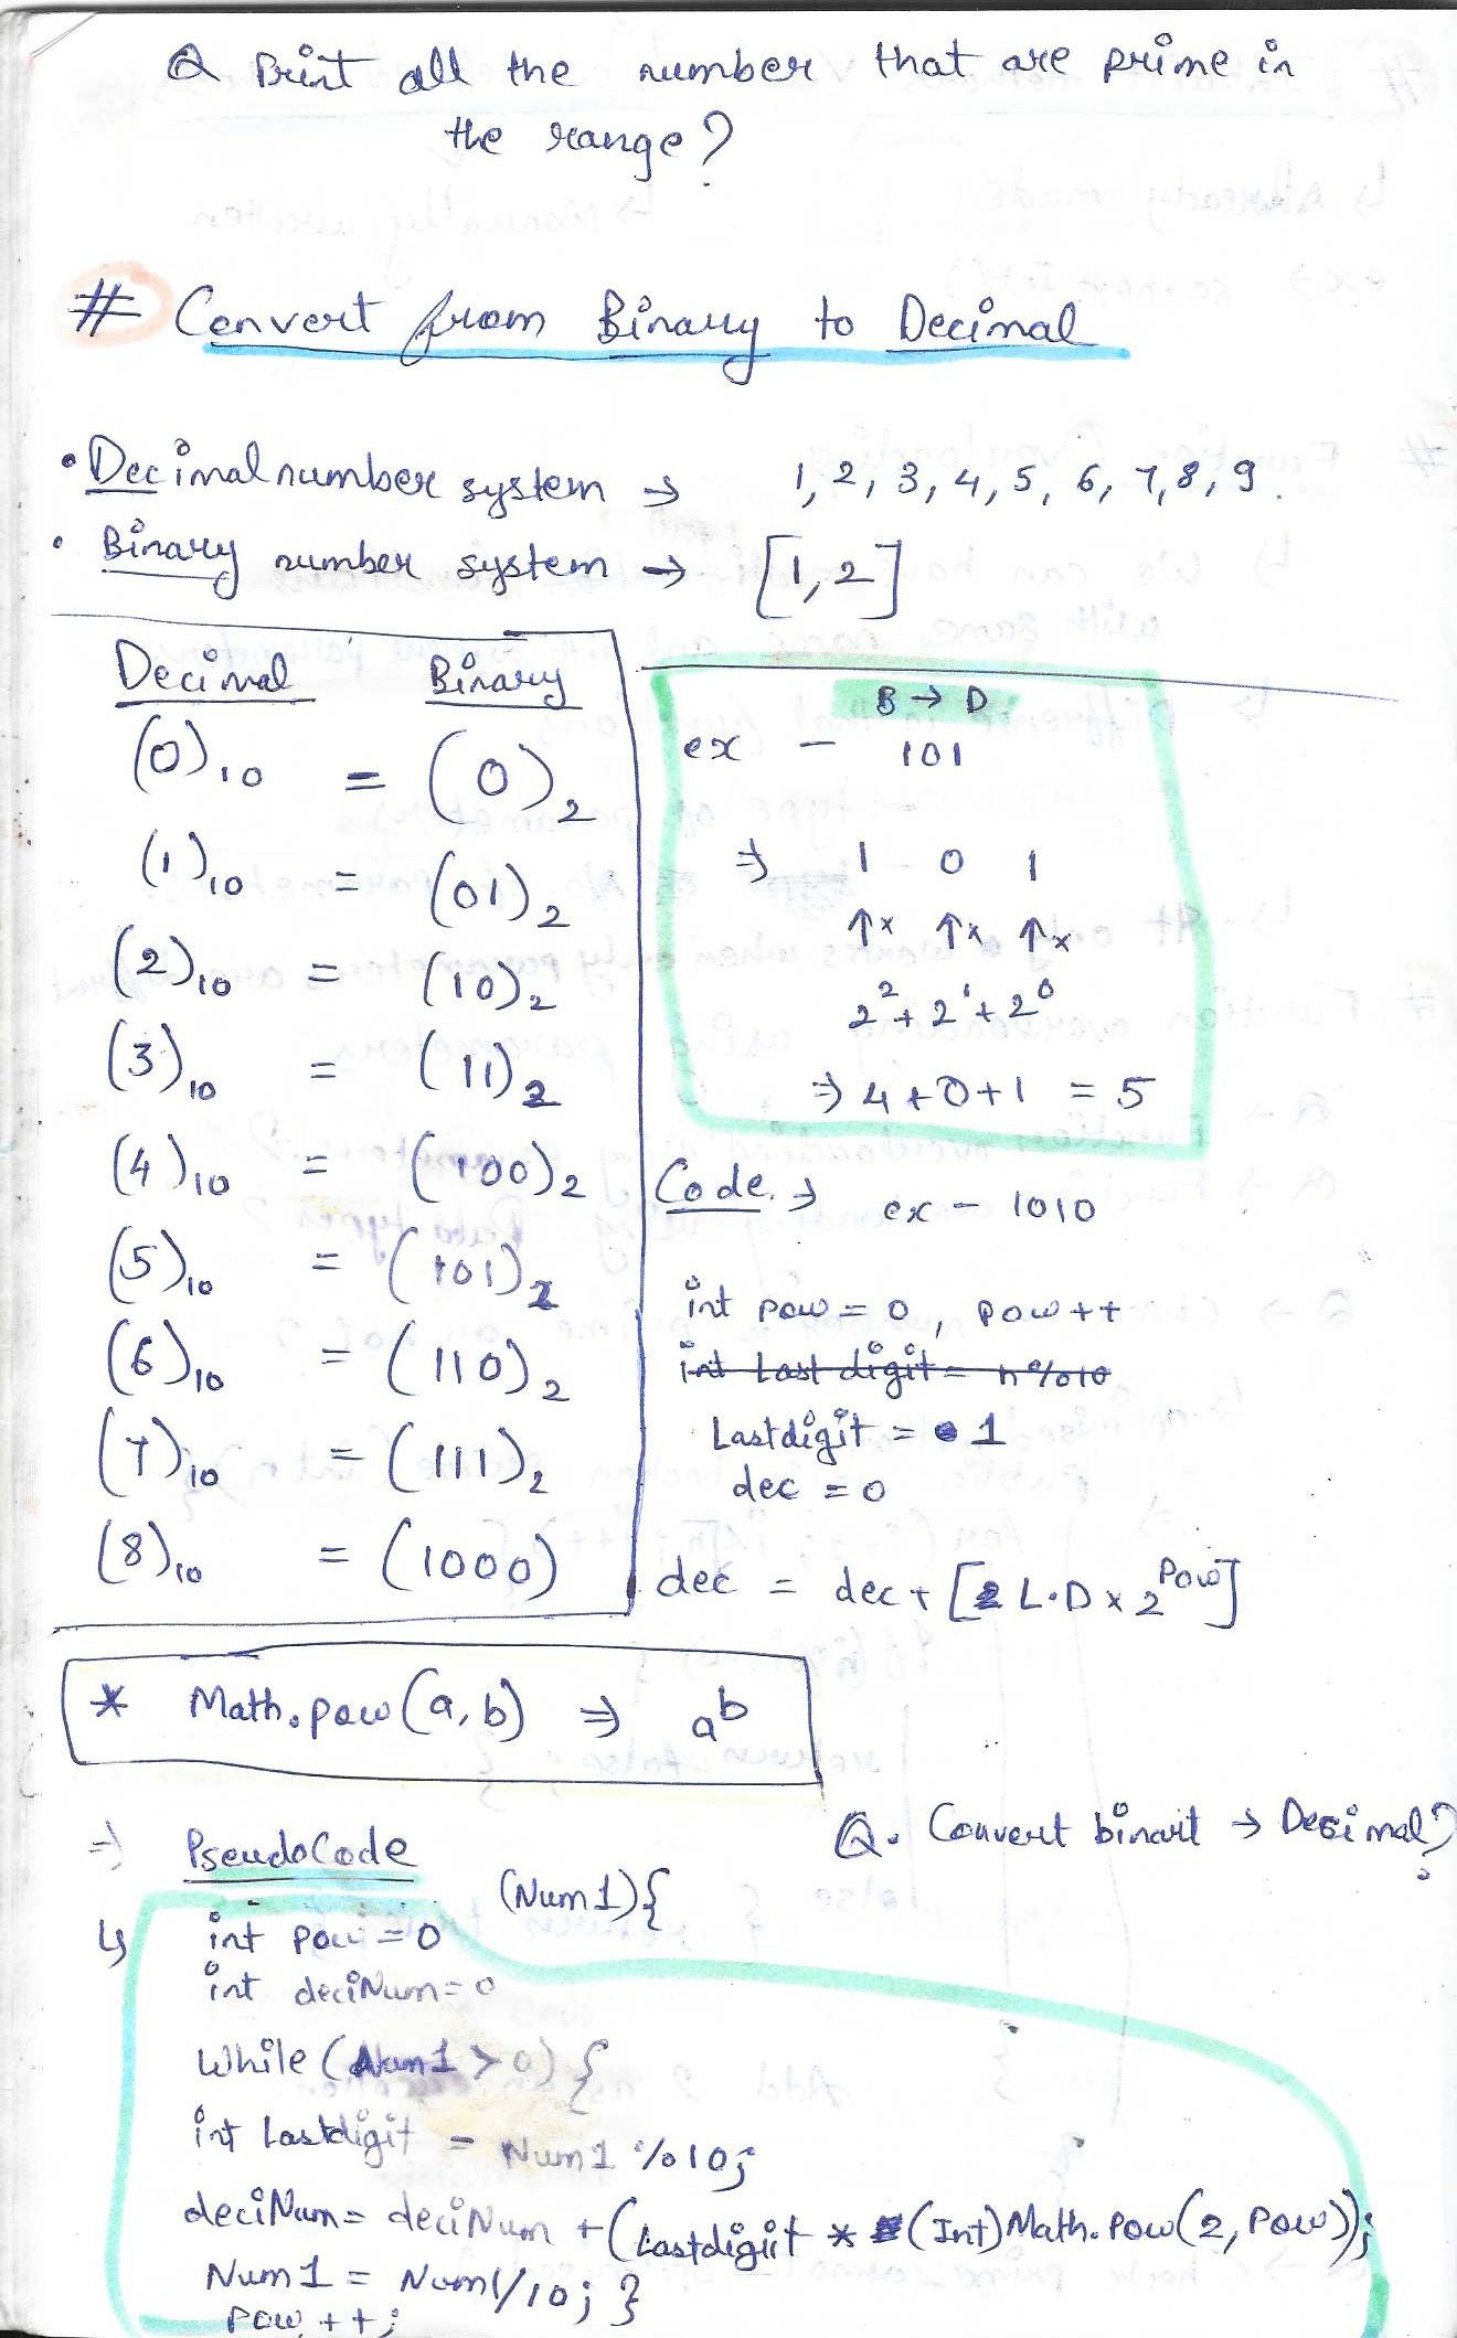 Q Print all the number that are prime in
the range?
# Convert from Binary to Decimal
• Decimal number system → 1, 2, 3, 4, 5, 6, 7, 8, 9.
• Binary number system → [1, 2]
Decimal Binary
(0)₁₀ = (0)₂
(1)₁₀ = (01)₂
(2)₁₀ = (10)₂
(3)₁₀ = (11)₂
(4)₁₀ = (100)₂
(5)₁₀ = (101)₂
(6)₁₀ = (110)₂
(7)₁₀ = (111)₂
(8)₁₀ = (1000)
B → D
ex - 101
⇒ 1 0 1
↑x ↑x ↑x
2² + 2¹ + 2⁰
⇒ 4 + 0 + 1 = 5
Code → ex - 1010
int pow = 0, pow++
int Last digit = n%10
Lastdigit = 1
dec = 0
dec = dec + [L.D x 2^Pow]
* Math.pow(a, b) ⇒ a^b
Q. Convert binart → Decimal?
⇒ PseudoCode
(Num1){
↳ int pow = 0
int deciNum = 0
While (Num1 > 0) {
int Lastdigit = Num1 %10;
deciNum = deciNum + (Lastdigit * (Int) Math.Pow(2, Pow));
Num1 = Num1/10; }
pow ++;